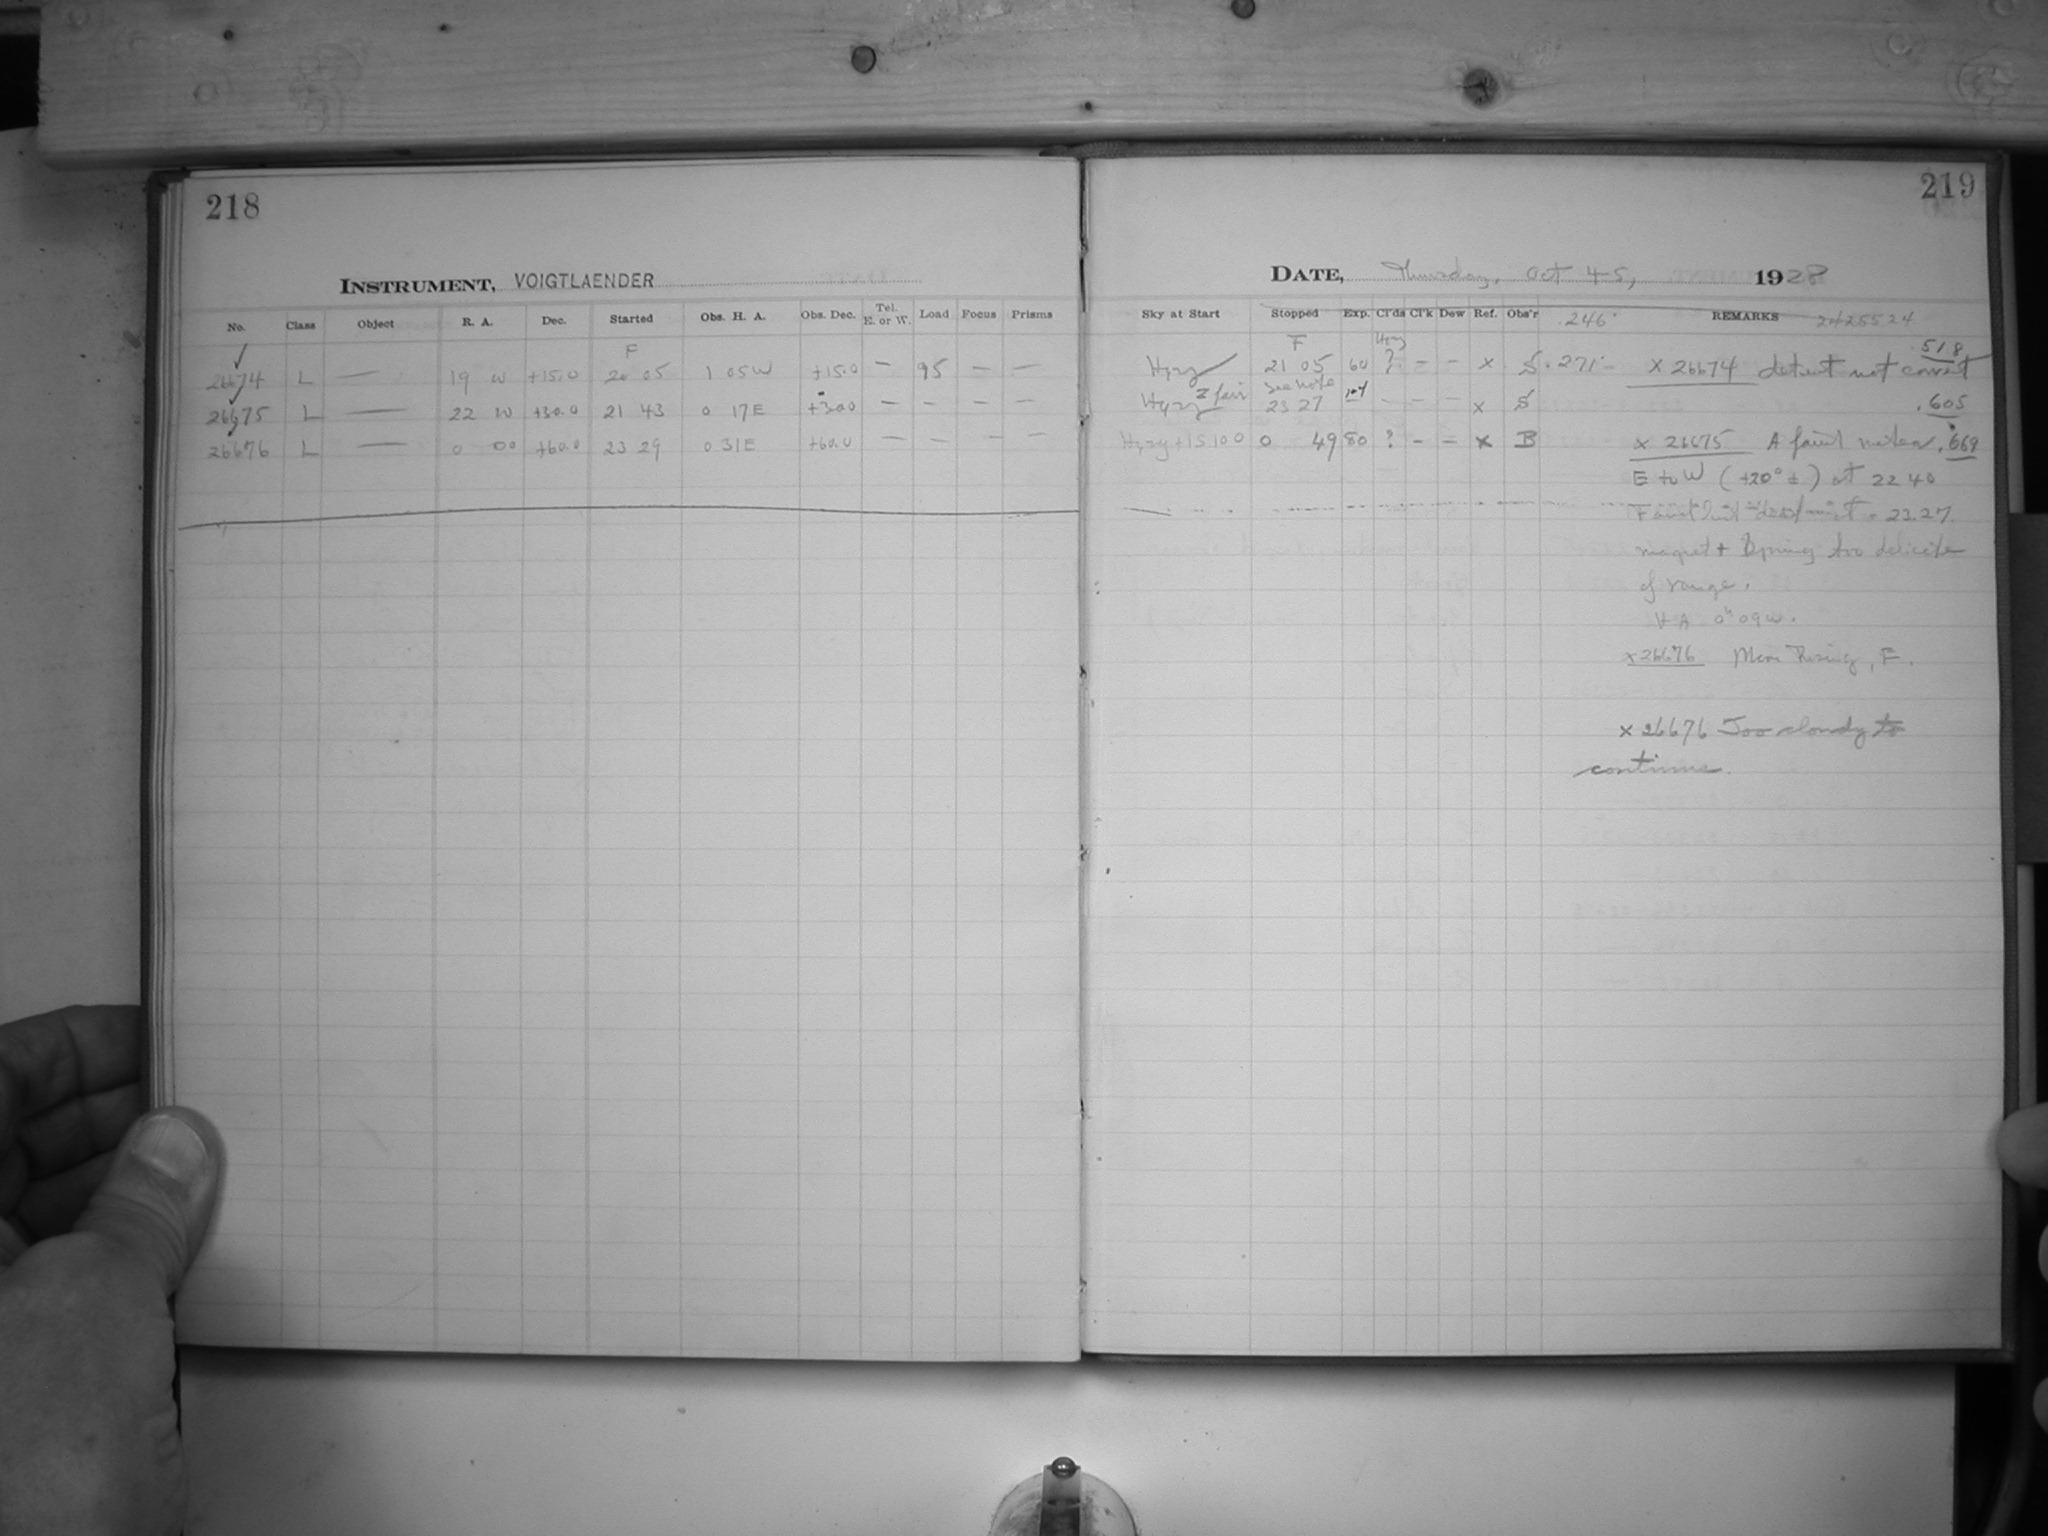 218
INSTRUMENT, VOIGTLAENDER
No. Class Object R. A. Dec. Started Obs. H. A. Obs. Dec. Tel. E. or W. Load Focus Prisms
F
26674 L — 19 W +15.0 20 05 1 05W +15.0 — 95 — —
26675 L — 22 W +30.0 21 43 0 17E +30.0 — — — —
26676 L — 0 00 +60.0 23 29 0 31E +60.0 — — — —
219
DATE, Thursday, Oct 4-5, 1928
Sky at Start Stopped Exp. Cl'ds Cl'k Dew Ref. Obs'r .246 REMARKS 2425524
F Hzy .518
Hzy 21 05 60 ? — — x S .271 x 26674 detent not correct
fair see note
Hzy 23 27 104 — — — x S .605
Hzy +15.100 0 49 80 ? — — x B x 26675 A faint meteor .669
E to W (+20° ±) at 22 40
23.27.
magnet + spring too delicate
of range.
H A 0h 09W.
x26676 Moon Rising, F.
x 26676 Too cloudy to
continue.